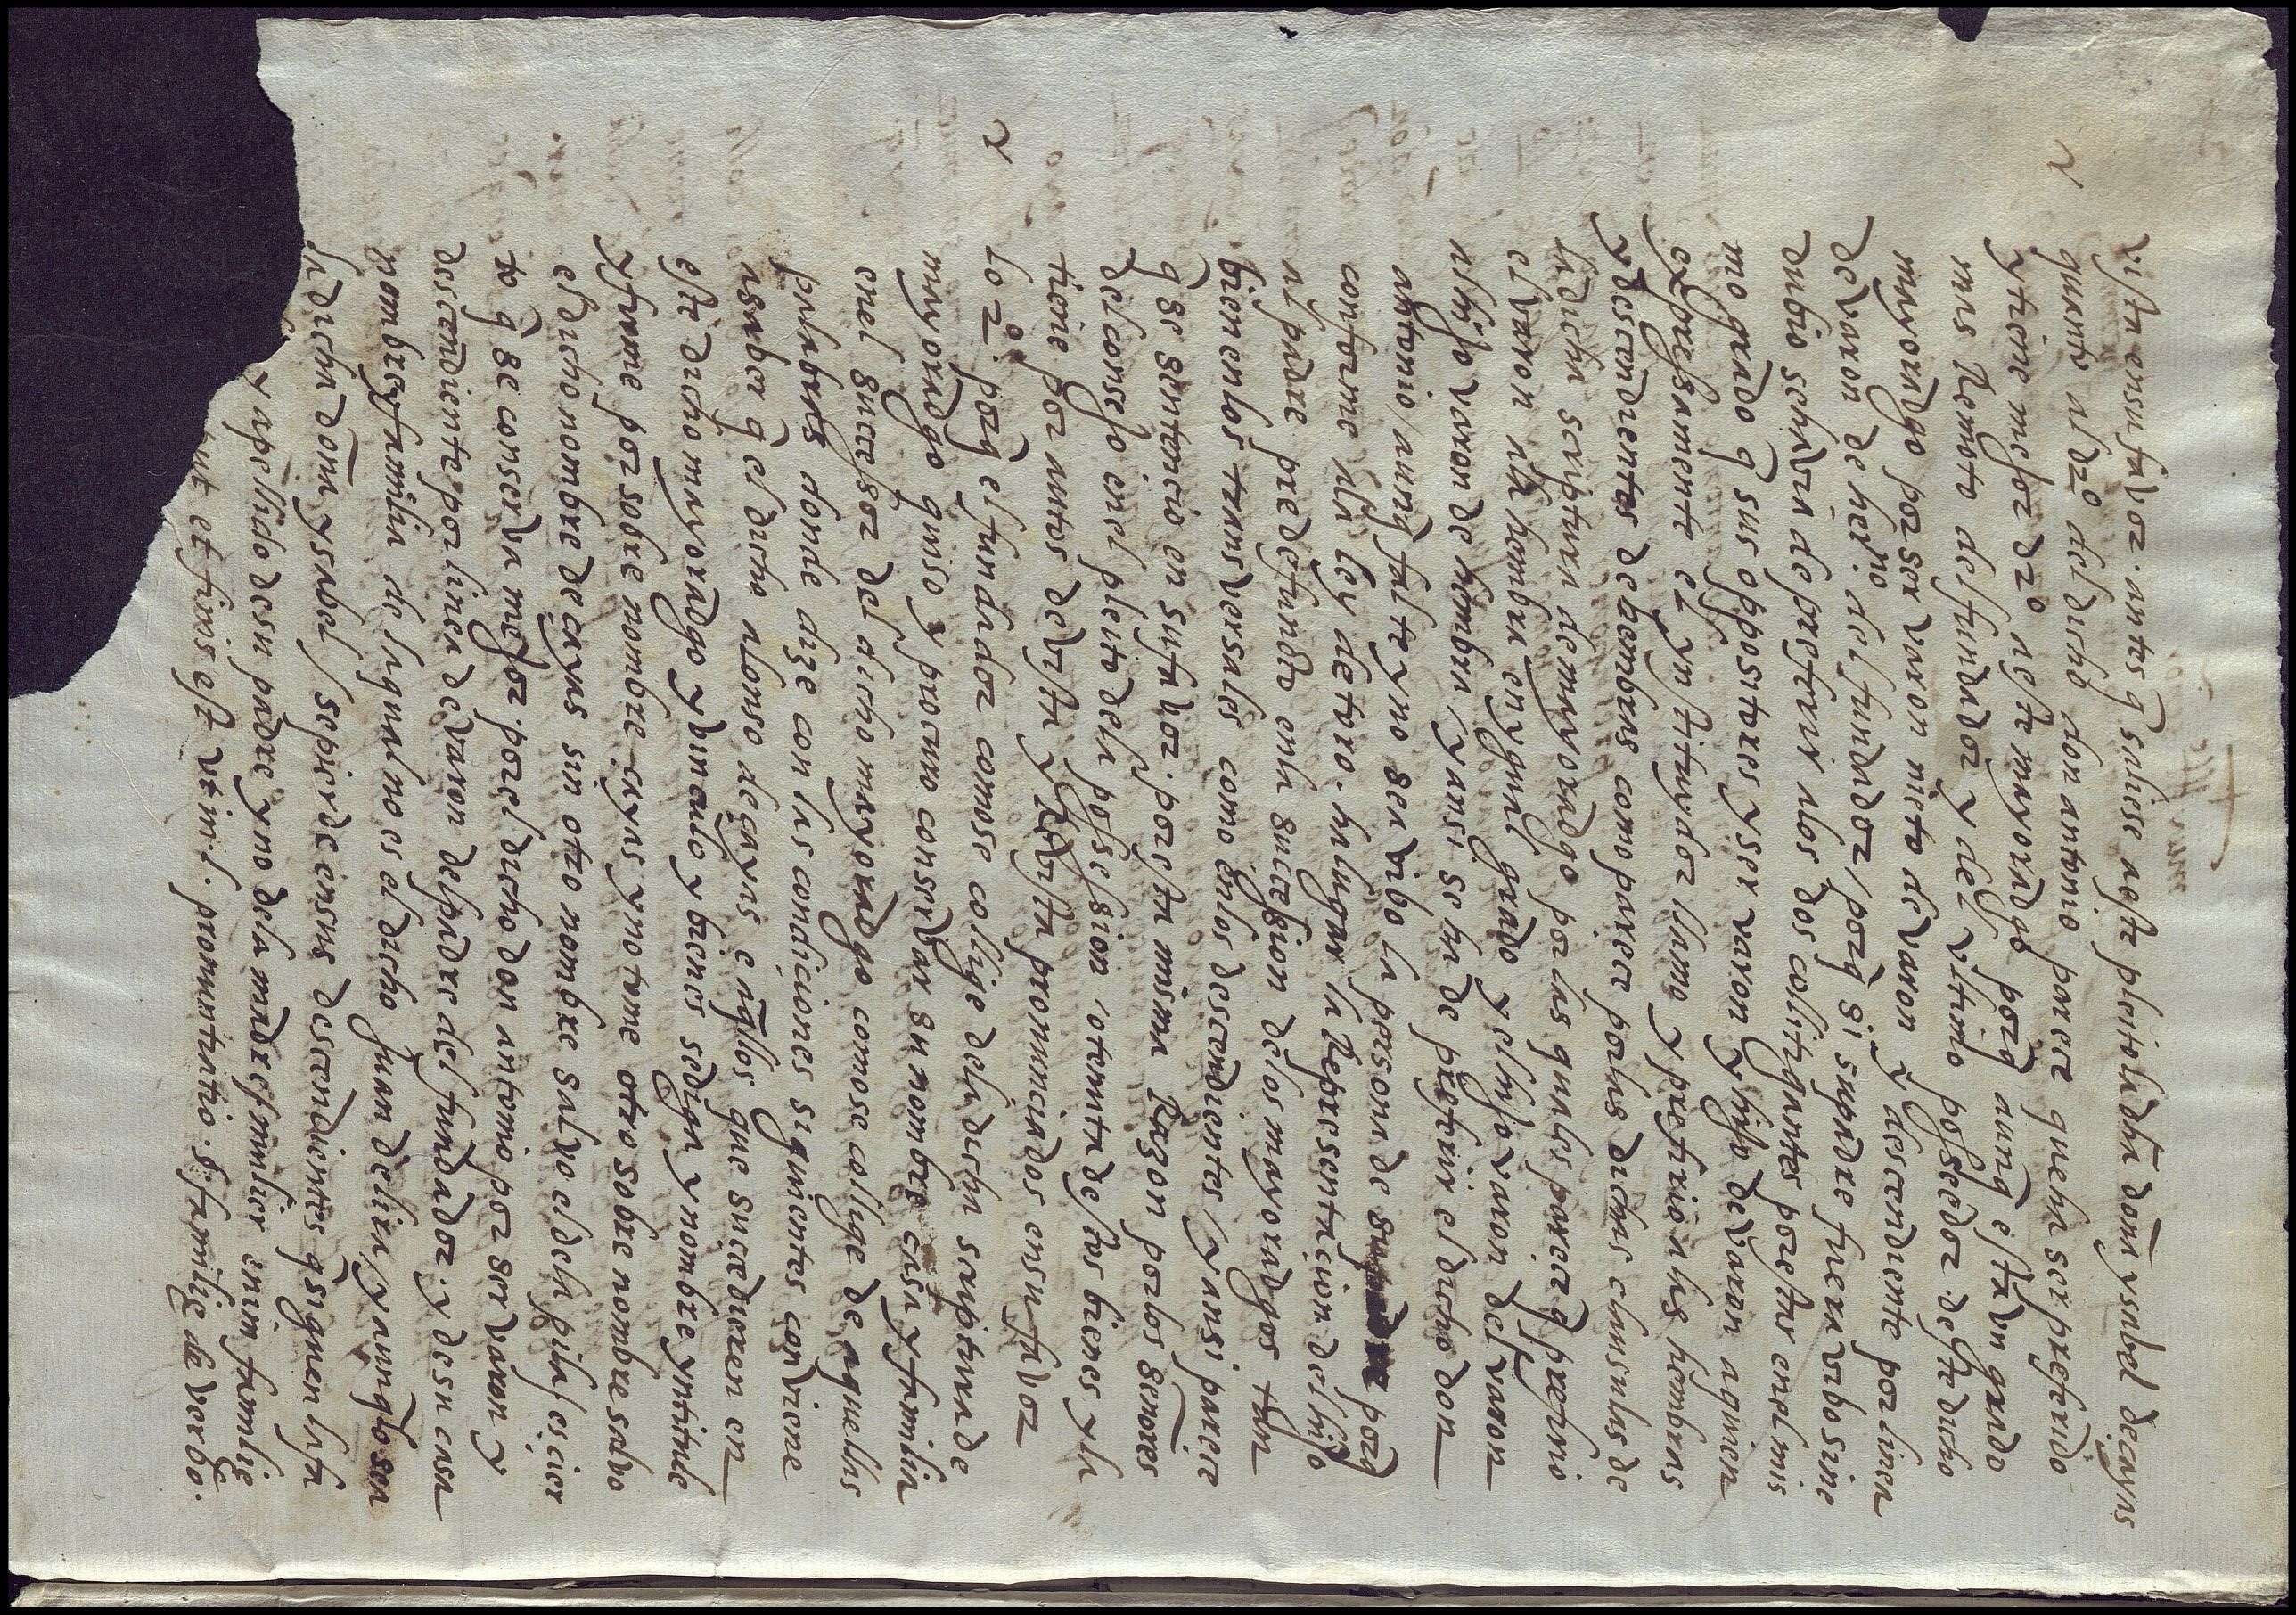 vista en su fabor. antes q̃ saliese a este pleito la dha doña ysabel de cayas
quanto al dr̃o del dicho don antonio parece que ha ser preferido
y tiene mejor dr̃o a este mayoradgo porq̃ aunq̃ esta un grado
mas Remoto del fundador y del vltimo posseedor deste dicho
mayoradgo por ser varon nieto de varon y descendiente por linea
de varon de herno del fundador / porq̃ si su padre fuera vibo sine
dubio se habia de preferir a los dos colitigantes por estar en el mis
mo grado q̃ sus oppositores y ser varon y hijo de varon a quien
expressamente el ynstituydor llamo y prefirio a las hembras
y descendientes de hembras como parece por las dichas clausulas de
la dicha scriptura de mayoradgo por las quales parece q̃ prefirio
el varon a la hembra en ygual grado y el hijo varon del varon
al hijo varon de hembra / y ansi se ha de preferir el dicho don
antonio / aunq̃ falte y no sea vibo la persona de su padre porq̃
conforme a la ley de toro. ha lugar la Representacion del hijo
al padre predefuncto en la sucession de los mayoradgos tam
bien en los transversales como en los descendientes / y ansi parece
q̃ se sentencio en su fabor. por esta misma Razon por los senores
del consejo en el pleito de la possession / o tenuta destos bienes y la
tiene por autos de vista y Revista pronunciados en su fabor
lo 2º. porq̃ el fundador como se collige de la dicha scriptura de
mayoradgo quiso y procuro conservar su nombre casa y familia
en el successor del dicho mayoradgo como se colige de aquellas
palabras donde dize con las condiciones siguientes conviene
a saber q̃ el dicho alonso de cayas e aq̃llos que sucedieren en
este dicho mayoradgo y binculo y bienes se digan y nombre yntitule
y firme por sobre nombre cayas y no tome otro sobre nombre salvo
el dicho nombre de cayas sin otro nombre salvo el de la pila / es cier
to q̃ se conserva mejor por el dicho don antonio por ser varon y
descendiente por linea de varon del padre del fundador. y de su casa
nombre y familia de la qual no es el dicho Juan de liri / y aunq̃ lo sea
la dicha doña ysabel se pierde en sus descendientes q̃ siguen la fa
y apellido de su padre y no de la madre / mulier enim familie
et finis est vt in l. pronuntiatio. §. familie de verbo.